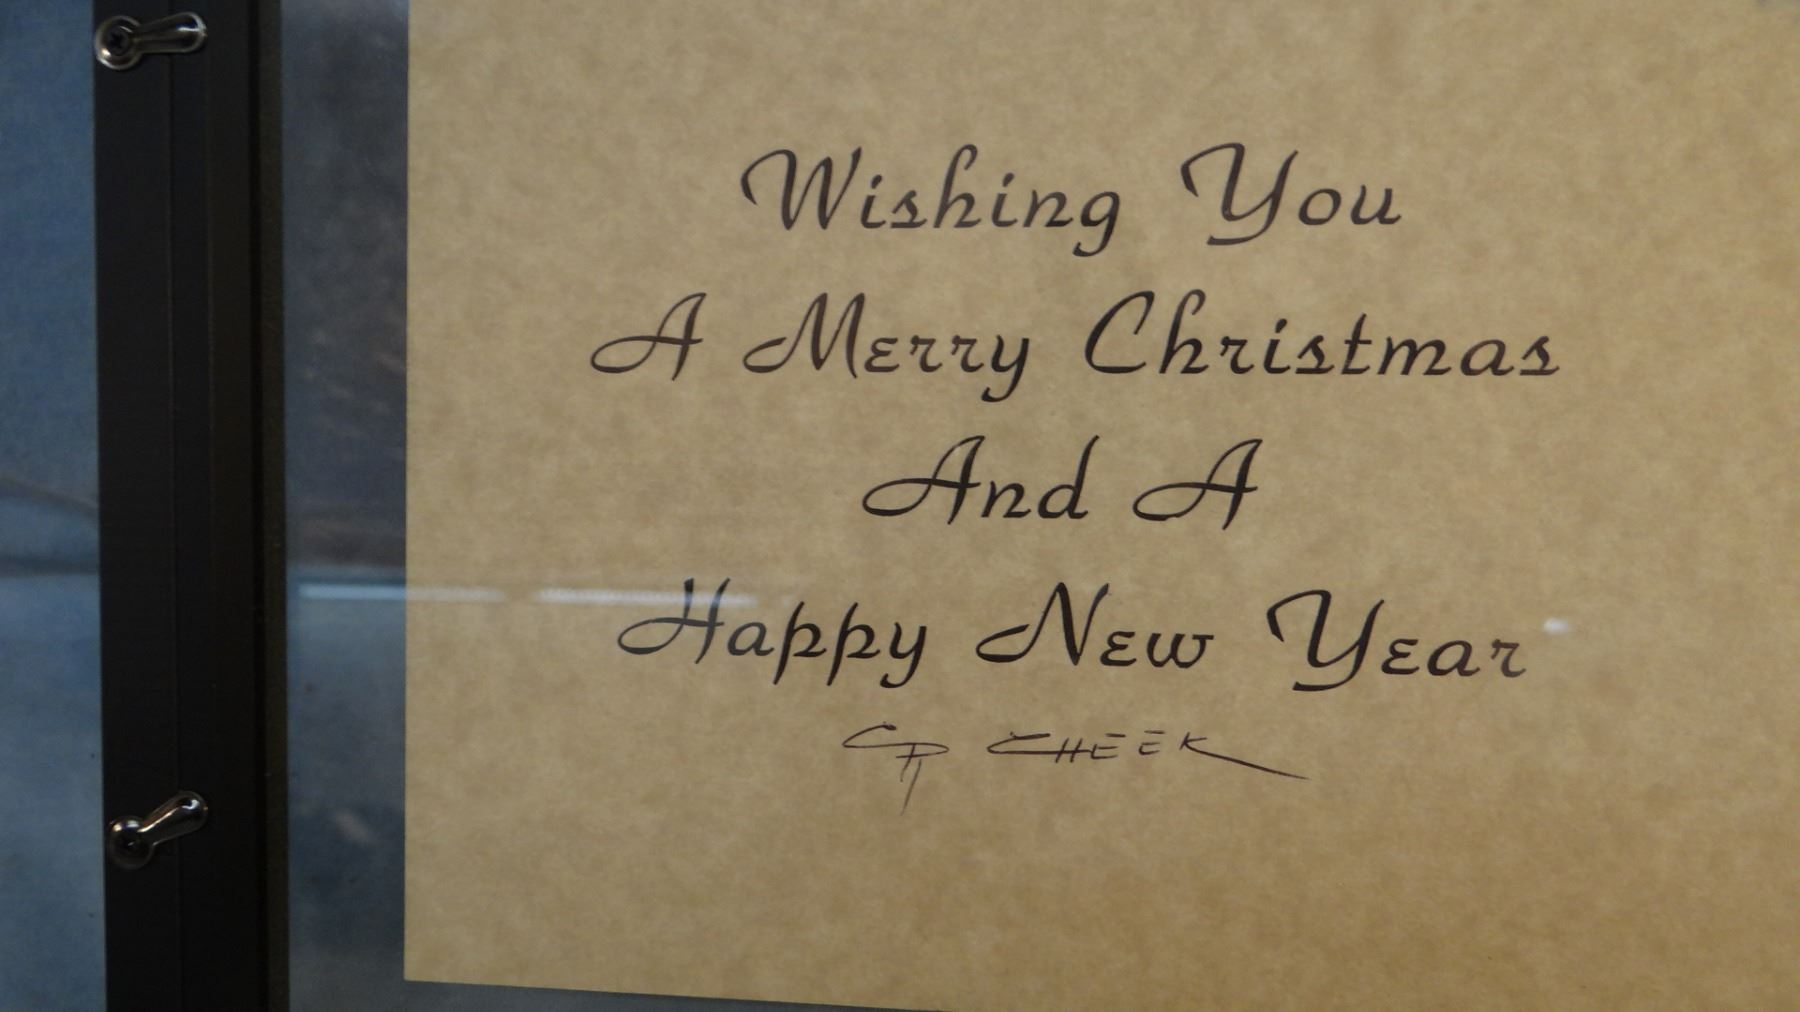 Wishing You
A Merry Christmas
And A
Happy New Year
CP CHEEK